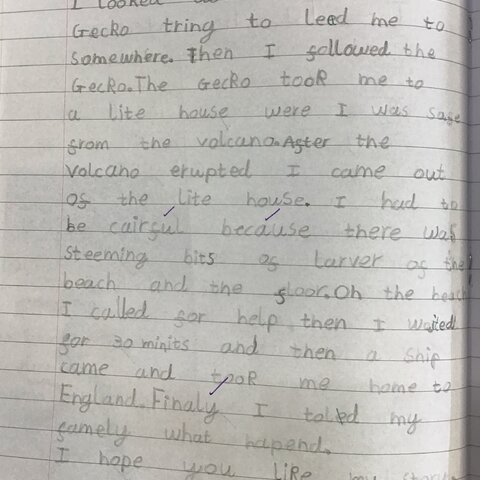 I looked
Gecko tring to leed me to
somewhere. Then I followed the
Gecko. The Gecko took me to
a lite house were I was safe
from the volcano. After the
volcano erupted I came out
of the lite house. I had to
be cairful because there was
steeming bits of larver of the
beach and the floor. Oh the beach
I called for help then I waited
for 30 minits and then a ship
came and took me home to
England. Finaly I toled my
famely what hapend.
I hope you like my story